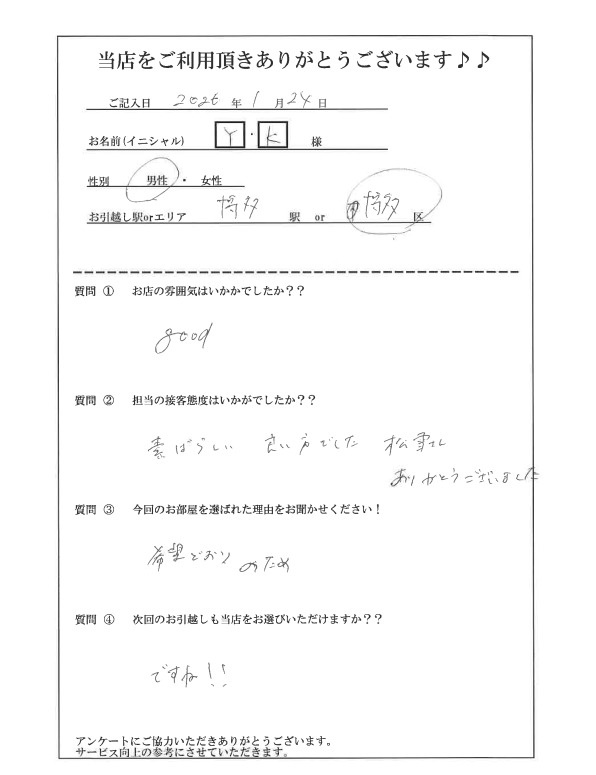 当店をご利用頂きありがとうございます♪♪
ご記入日 2026 年 1 月 24 日
お名前(イニシャル) Y ・ K 様
性別 男性 ・ 女性
お引越し駅orエリア 博多 駅 or 博多 区
質問 ① お店の雰囲気はいかかでしたか??
good
質問 ② 担当の接客態度はいかがでしたか??
素ばらしい 良い方でした 松雪さん
ありがとうございました
質問 ③ 今回のお部屋を選ばれた理由をお聞かせください!
希望どおりのため
質問 ④ 次回のお引越しも当店をお選びいただけますか??
ですね!!
アンケートにご協力いただきありがとうございます。
サービス向上の参考にさせていただきます。